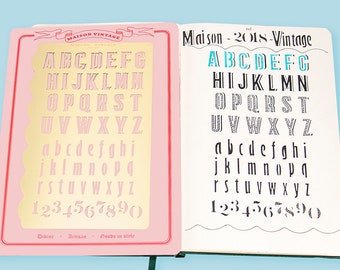 MAISON VINTAGE
ABCDEFG
HIJKLMN
OPQRSTU
VWXYZ
abcdefghi
jklmnopq
rstuvwxyz
1234567890
Maison - 2018 - Vintage
ABCDEFG
HIJKLMN
OPQRSTU
VWXYZ
abcdefghi
jklmnopq
rstuvwxyz
1234567890